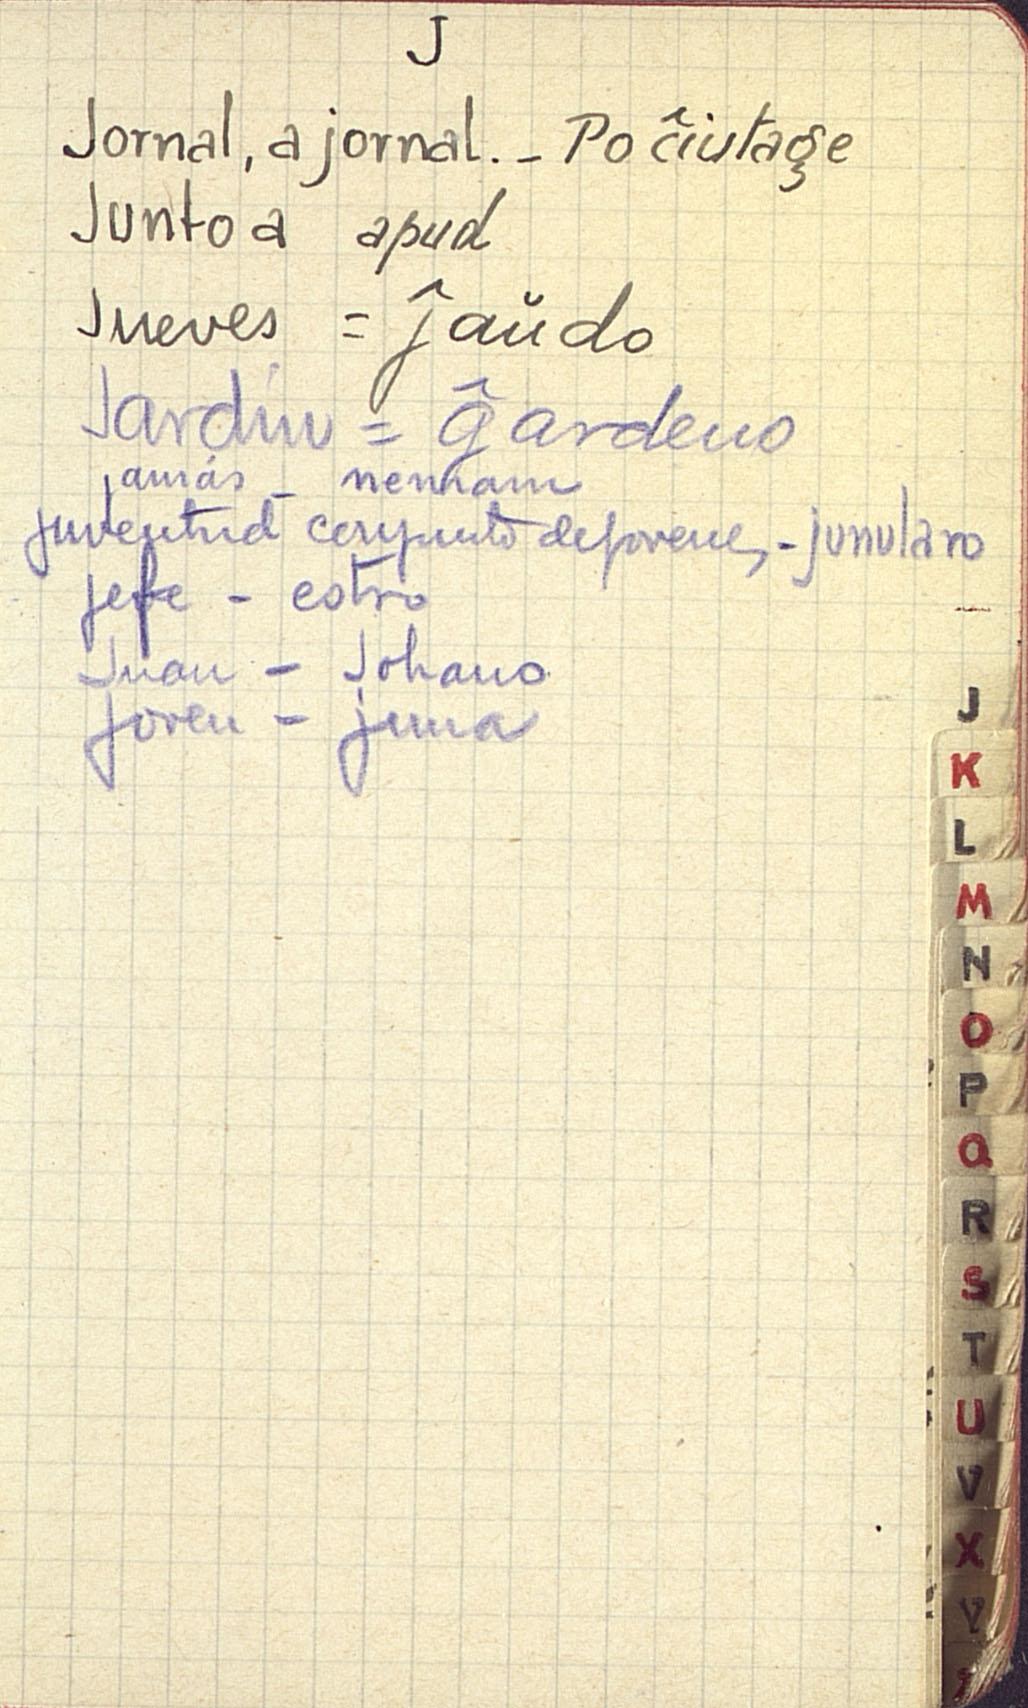 J
Jornal, a jornal. - Po ĉiutage
Junto a apud
Jueves = ĵaŭdo
Jardin = ĝardeno
jamás - nenham
juventud conjunto de jovenes, - junularo
jefe - estro
Juan - Johano
joven - juna
J
K
L
M
N
O
P
Q
R
S
T
U
V
X
Y